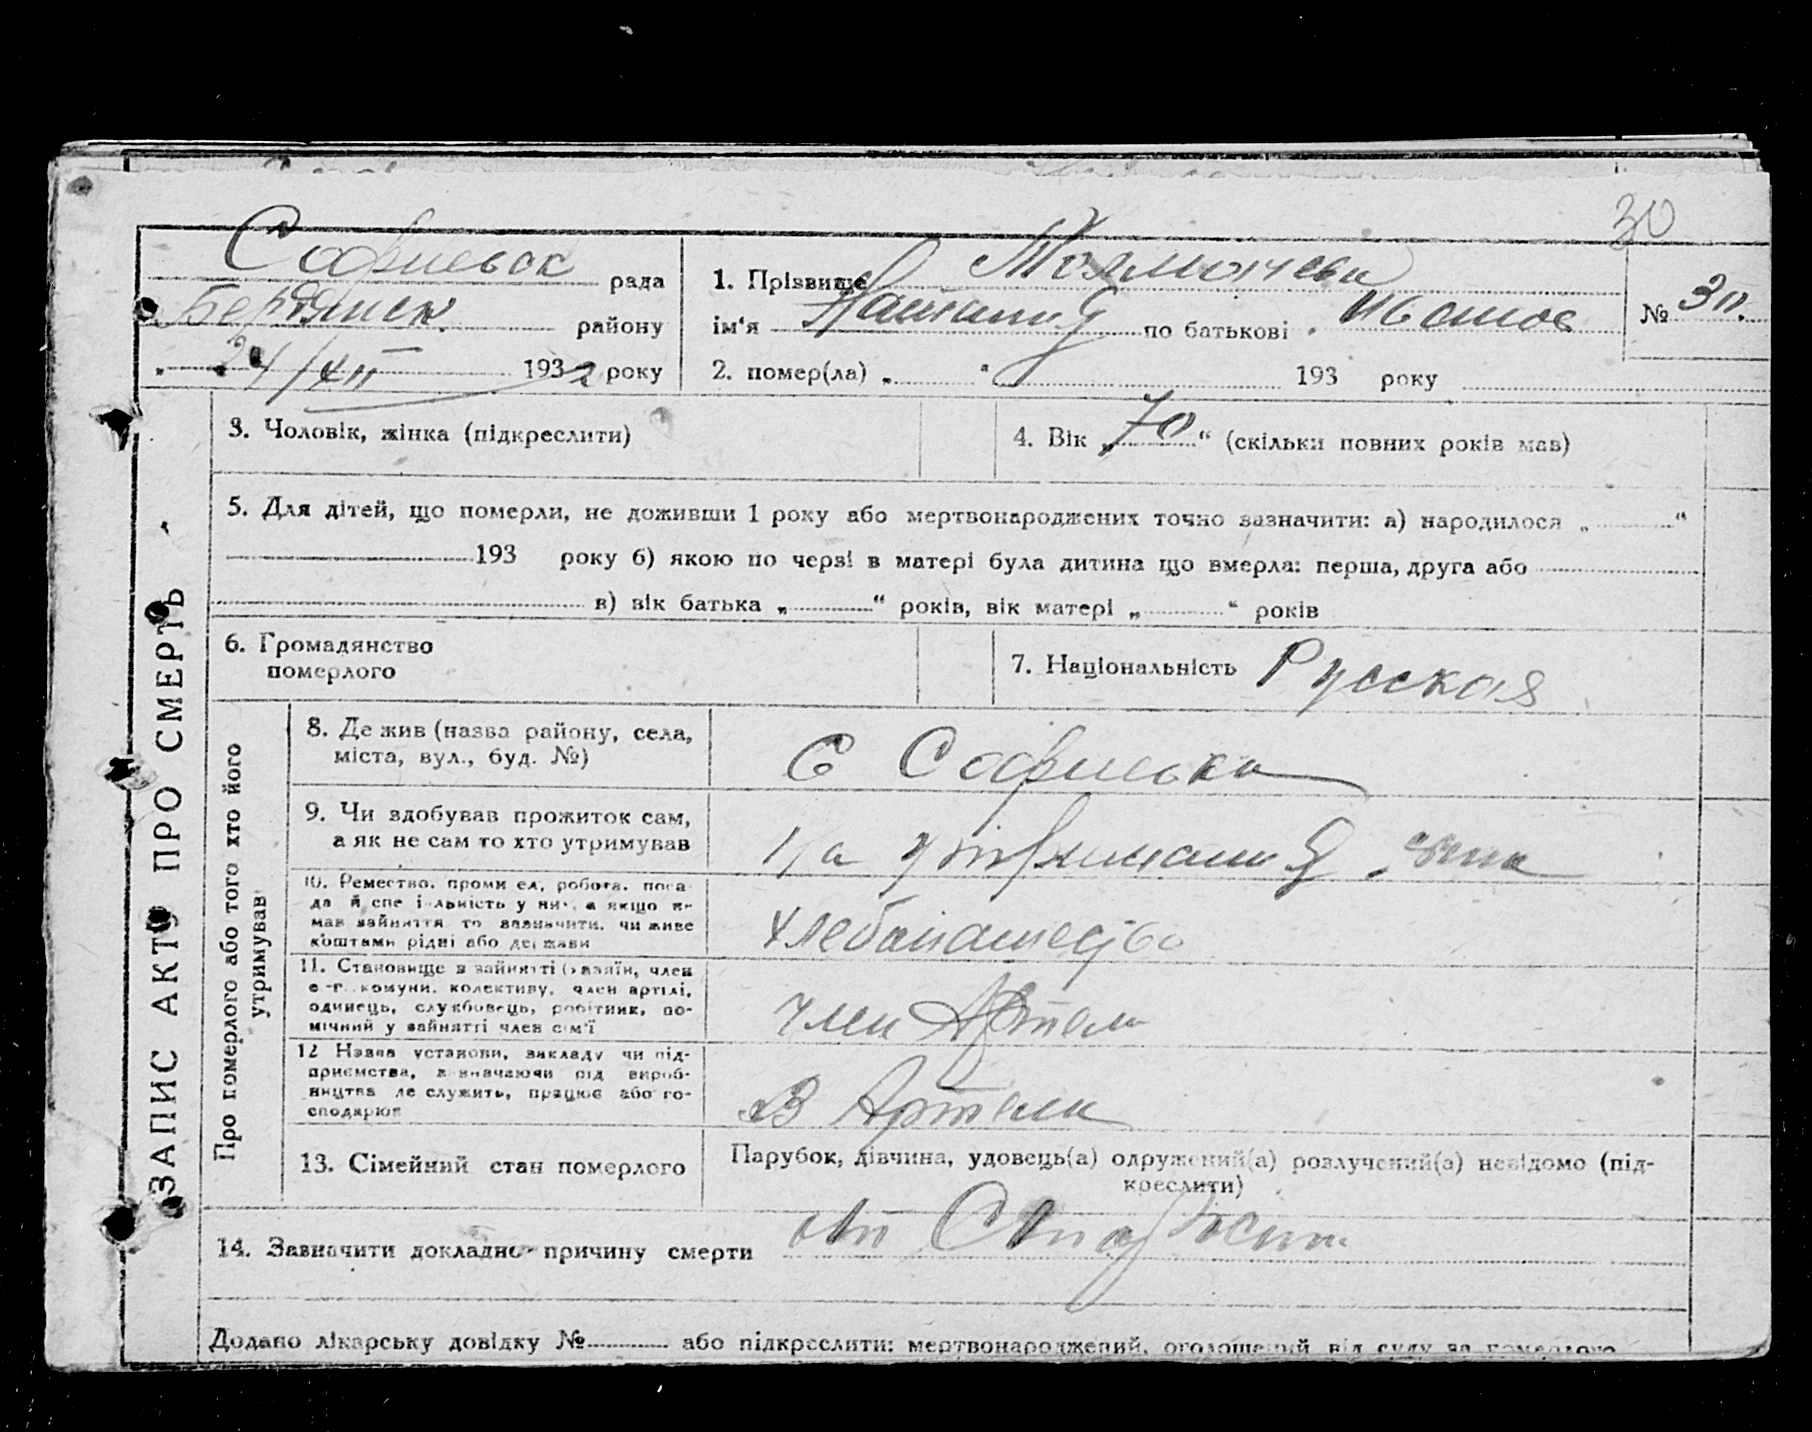 30
Софиевск рада
Бердянск району
24/XII 1932 року
1. Прізвище Толмачева
ім'я по батькові Иванов
№ 30.
2. помер(ла) „ " 193 року
3. Чоловік, жінка (підкреслити)
4. Вік „70“ (скільки повних років мав)
5. Для дітей, що померли, не доживши 1 року або мертвонароджених точно зазначити: а) народилося „ “
193 року б) якою по черзі в матері була дитина що вмерла: перша, друга або
в) вік батька „ “ років, вік матері „ “ років
6. Громадянство
померлого
7. Національність Русская
ЗАПИС АКТУ ПРО СМЕРТЬ
Про померлого або того хто його
утримував
8. Де жив (назва району, села,
міста, вул., буд. №)
С Софиевка
9. Чи здобував прожиток сам,
а як не сам то хто утримував
На
10. Ремество, промисел, робота, поса-
да й спеціальність у ній, а якщо не
мав зайняття то зазначити, чи живе
коштами рідні або держави
Хлебопашество
11. Становище в зайнятті (хазяїн, член
с.-г. комуни, колективу, член артілі,
одинець, службовець, робітник, по-
мічний у зайнятті член сім'ї
член Артели
12 Назва установи, закладу чи під-
приємства, зазначаючи рід вироб-
ництва де служить, працює або го-
сподарює
В Артели
13. Сімейний стан померлого
Парубок, дівчина, удовець(а) одружений(а) розлучений(а) невідомо (під-
креслити)
14. Зазначити докладно причину смерти от
Додано лікарську довідку № або підкреслити: мертвонароджений, оголошений від суду за померлого